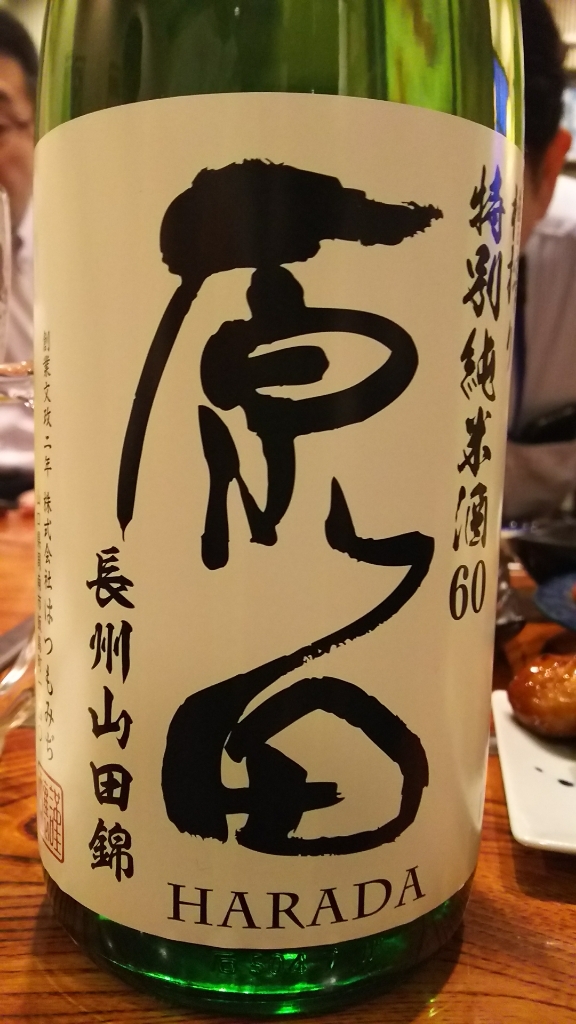 特別純米酒60
原田
長州山田錦
創業文政二年 株式会社はつもみぢ
HARADA